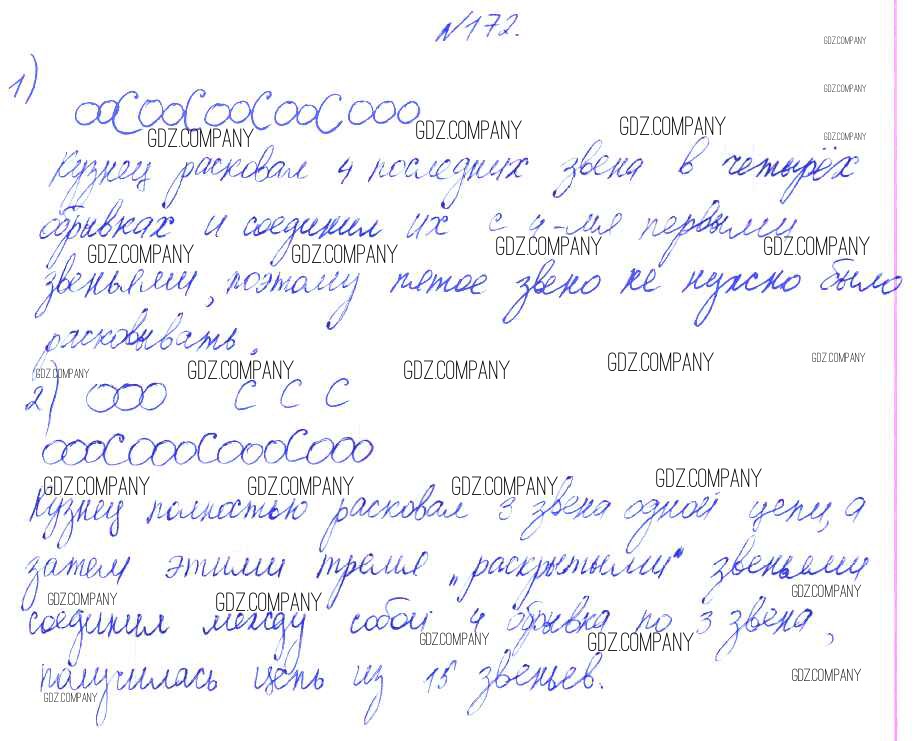 №172.
GDZ.COMPANY
1)
GDZ.COMPANY
GDZ.COMPANY GDZ.COMPANY GDZ.COMPANY GDZ.COMPANY
Кузнец расковал 4 последних звена в четырёх
обрывках и соединил их с 4-мя первыми
GDZ.COMPANY GDZ.COMPANY GDZ.COMPANY GDZ.COMPANY
звеньями, поэтому пятое звено не нужно было
расковывать.
GDZ.COMPANY GDZ.COMPANY GDZ.COMPANY GDZ.COMPANY GDZ.COMPANY
2)
GDZ.COMPANY GDZ.COMPANY GDZ.COMPANY GDZ.COMPANY
Кузнец полностью расковал 3 звена одной цепи, а
затем этими тремя „раскрытыми" звеньями
GDZ.COMPANY GDZ.COMPANY GDZ.COMPANY
соединил между собой 4 обрывка по 3 звена,
GDZ.COMPANY GDZ.COMPANY
получилась цепь из 15 звеньев.
GDZ.COMPANY GDZ.COMPANY